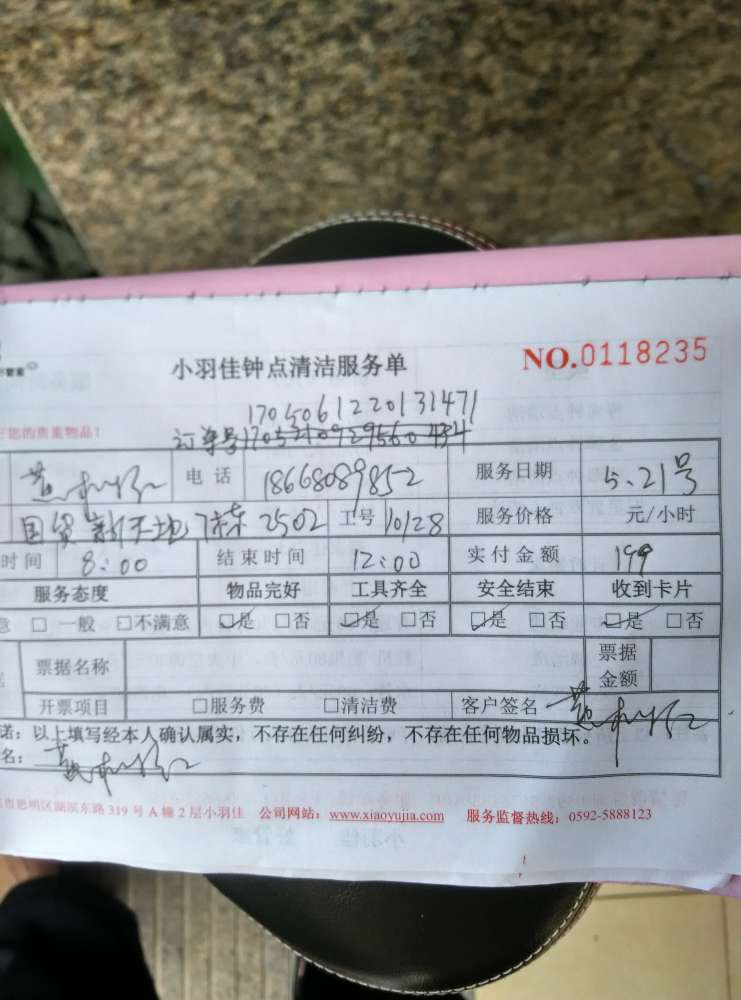 小羽佳钟点清洁服务单 NO.0118235
1705061220131471
订单号
您的贵重物品!
电话 18668089852 服务日期 5.21号
国贸新天地7栋2502 工号 10128 服务价格 元/小时
时间 8:00 结束时间 12:00 实付金额 199
服务态度 物品完好 工具齐全 安全结束 收到卡片
意 □ 一般 □不满意 ☑是 □否 ☑是 □否 ☑是 □否 ☑是 □否
票据名称 票据金额
开票项目 □服务费 □清洁费 客户签名
诺：以上填写经本人确认属实，不存在任何纠纷，不存在任何物品损坏。
名：
市思明区湖滨东路 319 号 A 幢 2 层小羽佳 公司网站：www.xiaoyujia.com 服务监督热线：0592-5888123